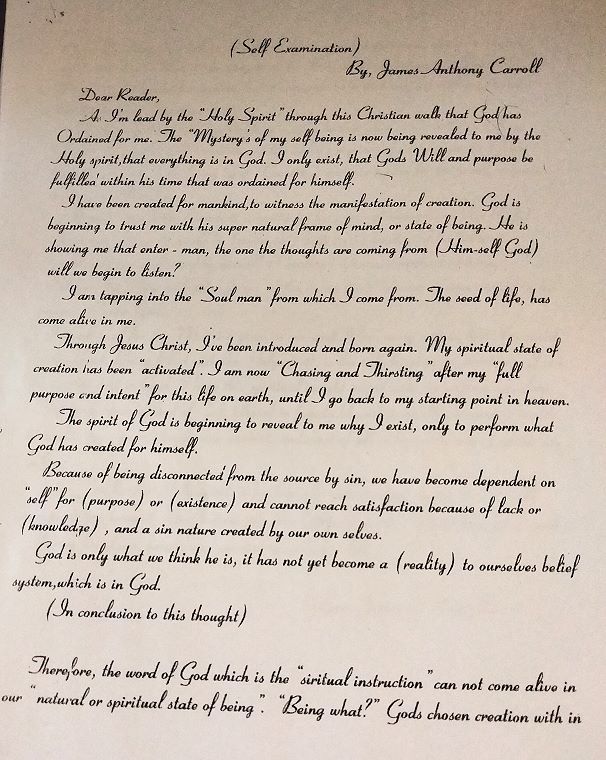 (Self Examination)
By, James Anthony Carroll
Dear Reader,
As I'm lead by the "Holy Spirit" through this Christian walk that God has
Ordained for me. The "Mystery's of my self being is now being revealed to me by the
Holy spirit, that everything is in God. I only exist, that Gods Will and purpose be
fulfilled within his time that was ordained for himself.
I have been created for mankind, to witness the manifestation of creation. God is
beginning to trust me with his super natural frame of mind, or state of being. He is
showing me that enter - man, the one the thoughts are coming from (Him-self God)
will we begin to listen?
I am tapping into the "Soul man" from which I come from. The seed of life, has
come alive in me.
Through Jesus Christ, I've been introduced and born again. My spiritual state of
creation has been "activated". I am now "Chasing and Thirsting" after my "full
purpose and intent" for this life on earth, until I go back to my starting point in heaven.
The spirit of God is beginning to reveal to me why I exist, only to perform what
God has created for himself.
Because of being disconnected from the source by sin, we have become dependent on
"self" for (purpose) or (existence) and cannot reach satisfaction because of lack or
(knowledge) , and a sin nature created by our own selves.
God is only what we think he is, it has not yet become a (reality) to ourselves belief
system, which is in God.
(In conclusion to this thought)
Therefore, the word of God which is the "siritual instruction" can not come alive in
our "natural or spiritual state of being". "Being what?" Gods chosen creation with in